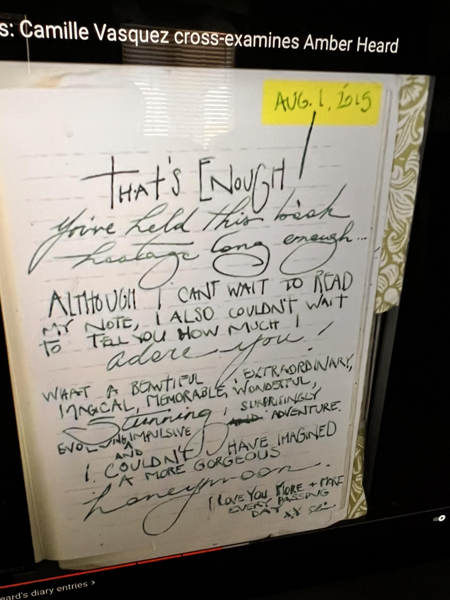 s: Camille Vasquez cross-examines Amber Heard
AUG. 1, 2015
THAT'S ENOUGH!
You've held this book
hostage long enough...
ALTHOUGH I CAN'T WAIT TO READ
MY NOTE, I ALSO COULDN'T WAIT
TO TELL YOU HOW MUCH I
adore you!
WHAT A BEAUTIFUL, EXTRAORDINARY,
MAGICAL, MEMORABLE, WONDERFUL,
Stunning, SURPRISINGLY
EVOLVING IMPULSIVE AND ADVENTURE.
I COULDN'T HAVE IMAGINED
A MORE GORGEOUS
honeymoon.
I LOVE YOU MORE + MORE
EVERY PASSING
DAY XX
eard's diary entries >